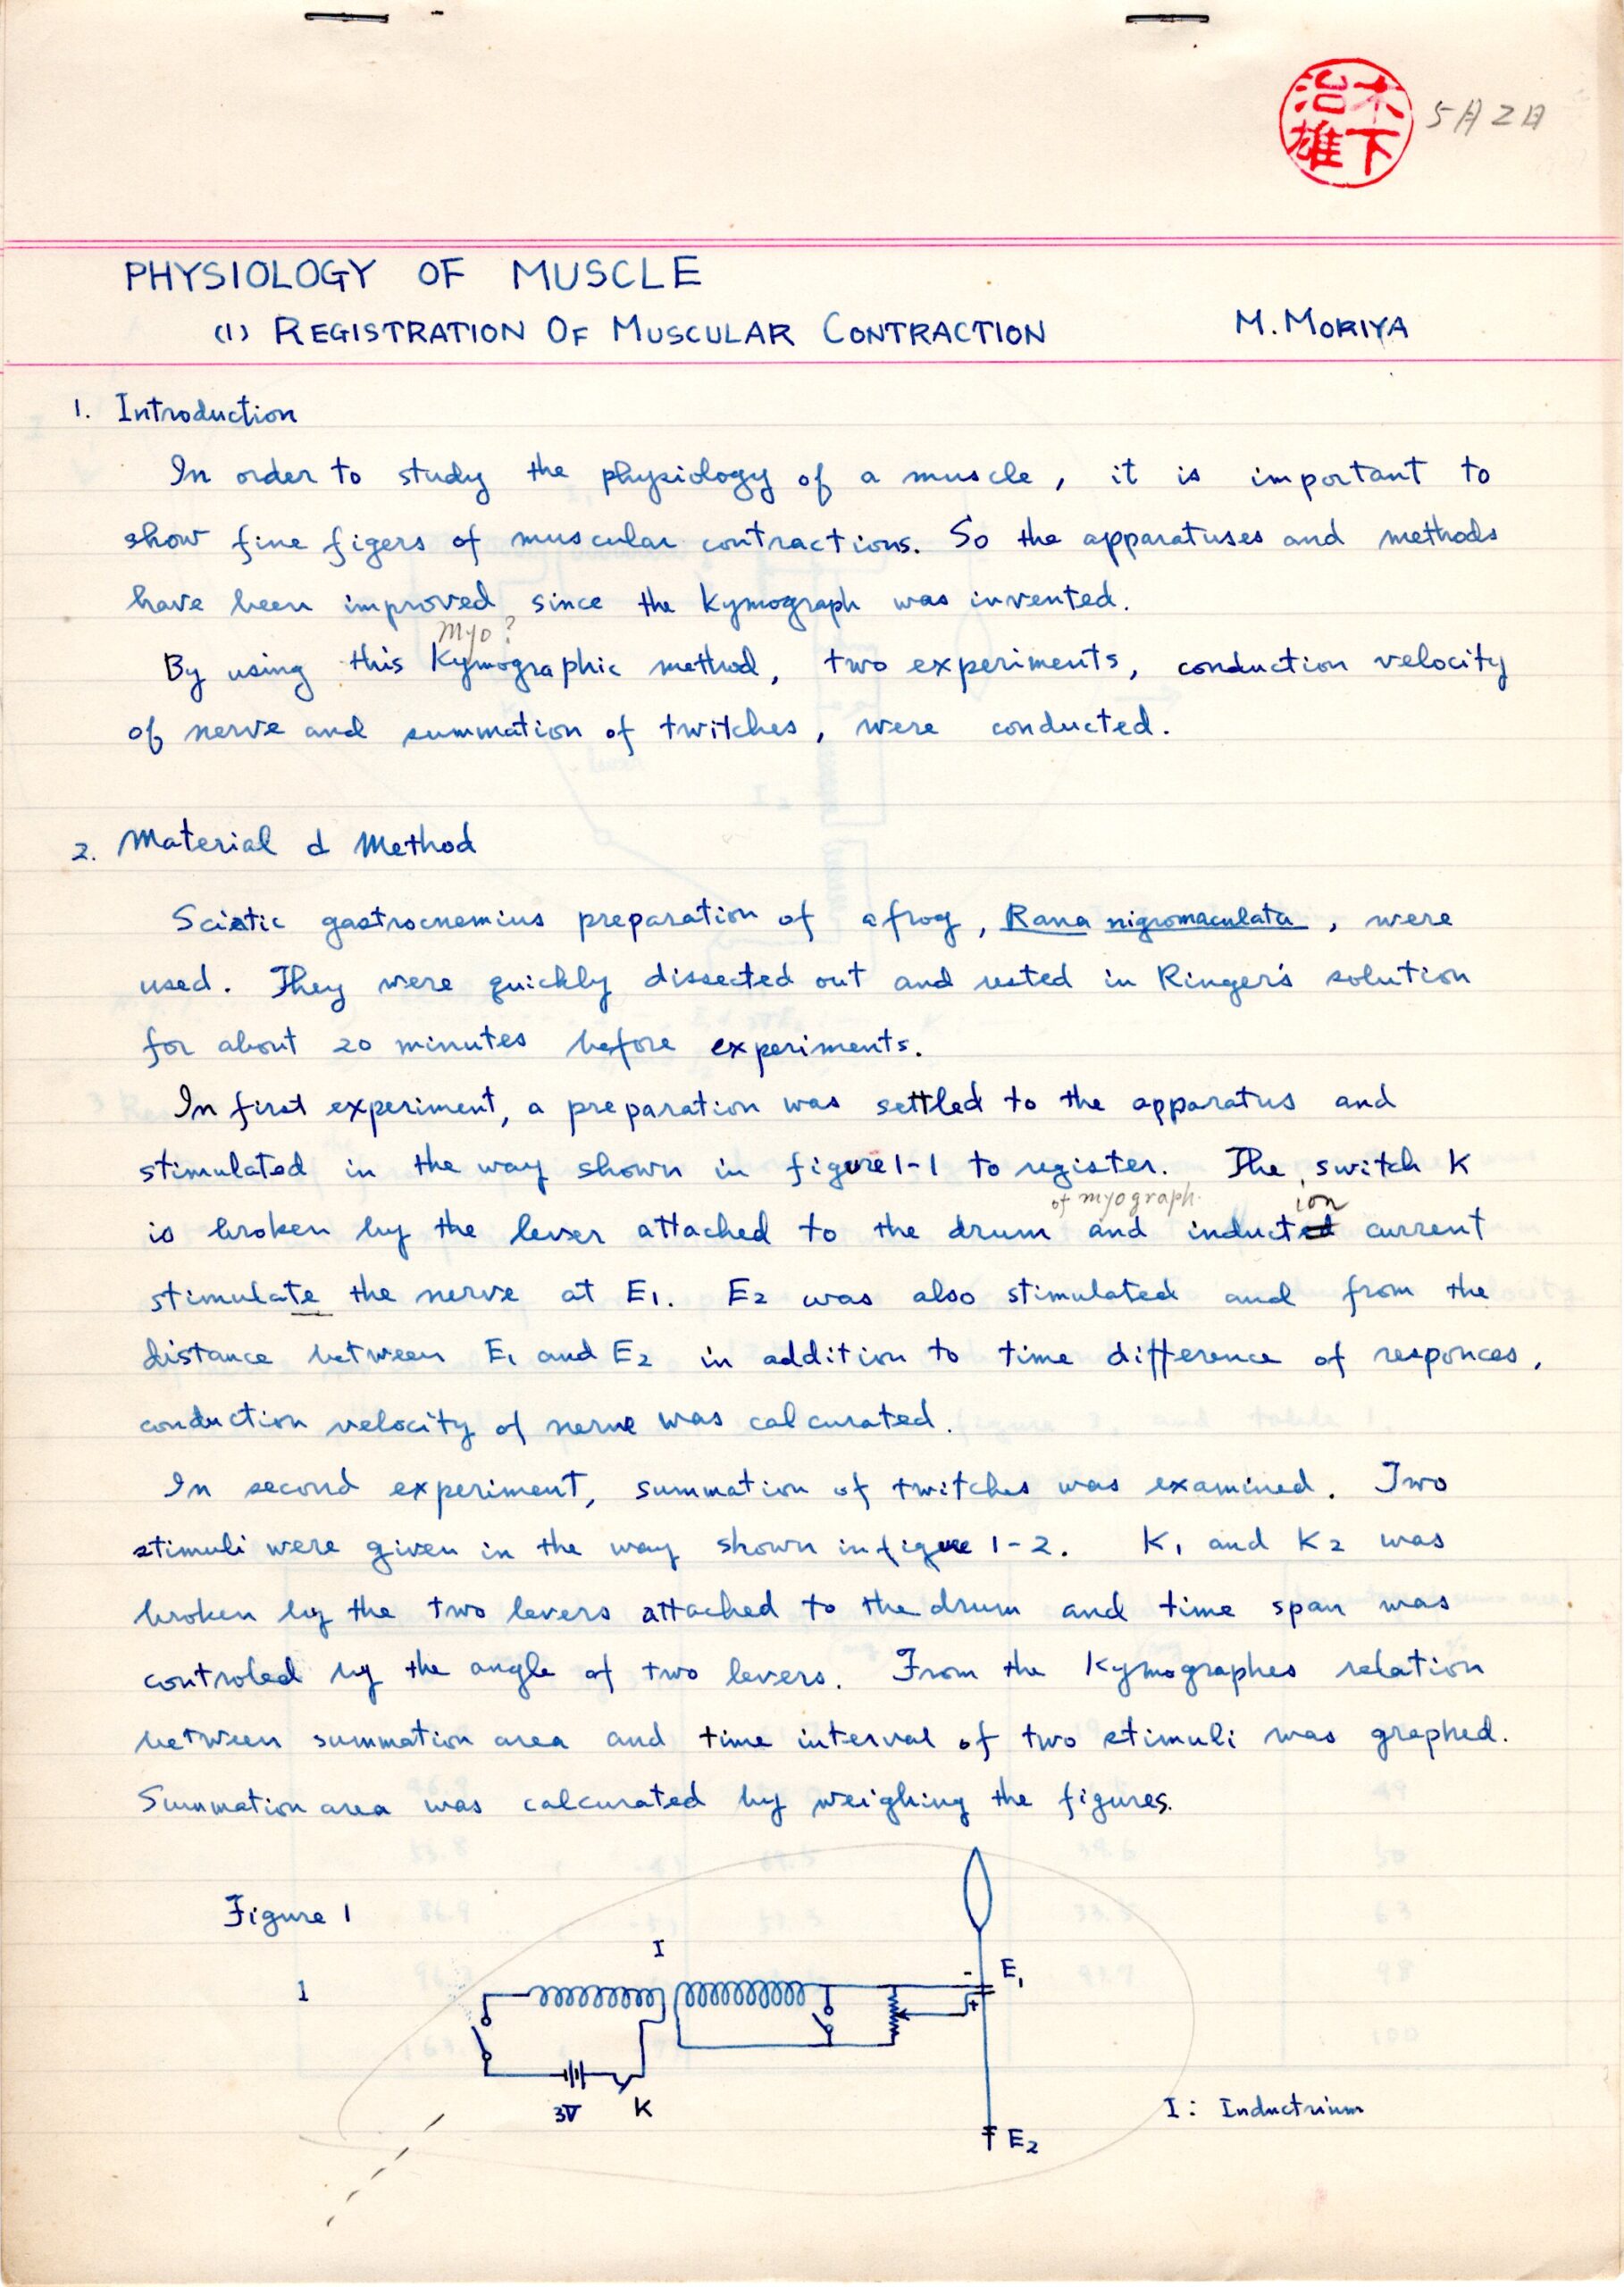 木下
治雄
5月2日
PHYSIOLOGY OF MUSCLE
(1) REGISTRATION OF MUSCULAR CONTRACTION M. MORIYA
1. Introduction
In order to study the physiology of a muscle, it is important to
show fine figers of muscular contractions. So the apparatuses and methods
have been improved since the Kymograph was invented.
Myo?
By using this Kymographic method, two experiments, conduction velocity
of nerve and summation of twitches, were conducted.
2. Material & Method
Sciatic gastrocnemius preparation of a frog, Rana nigromaculata, were
used. They were quickly dissected out and rested in Ringer's solution
for about 20 minutes before experiments.
In first experiment, a preparation was settled to the apparatus and
stimulated in the way shown in figure 1-1 to register. The switch K
of myograph. ion
is broken by the lever attached to the drum and inducted current
stimulate the nerve at E1. E2 was also stimulated and from the
distance between E1 and E2 in addition to time difference of responces,
conduction velocity of nerve was calcurated.
In second experiment, summation of twitches was examined. Two
stimuli were given in the way shown in figure 1-2. K1 and K2 was
broken by the two levers attached to the drum and time span was
controled by the angle of two levers. From the Kymographes relation
between summation area and time interval of two stimuli was graphed.
Summation area was calcurated by weighing the figures.
Figure 1
I
1
- E1
+
3V K
I: Inductrium
E2